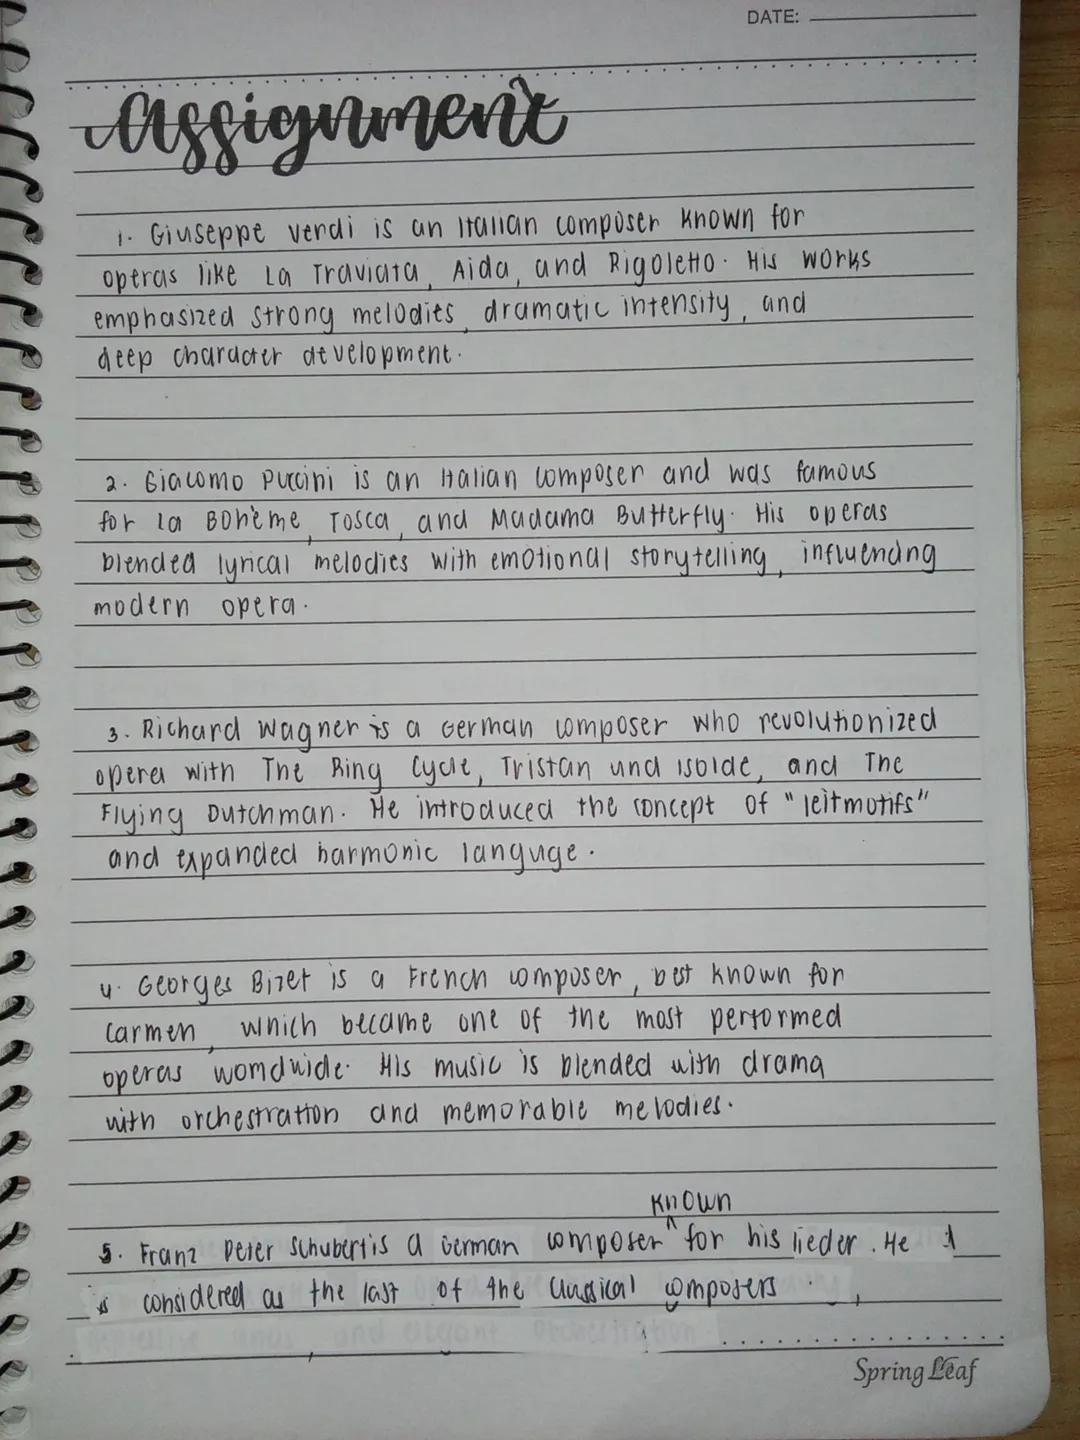 DATE:
Assignment
1. Giuseppe verdi is an Italian composer known for
operas like La Traviata, Aida, and Rigoletto. His works
emphasized strong melodies, dramatic intensity, and
deep character development.
2. Giacomo Puccini is an Italian composer and was famous
for la Bohème, Tosca, and Madama Butterfly. His operas
blended lyrical melodies with emotional storytelling, influencing
modern opera.
3. Richard Wagner is a German composer who revolutionized
opera with The Ring Cycle, Tristan und isolde, and The
Flying Dutchman. He introduced the concept of "leitmotifs"
and expanded harmonic languge.
4. Georges Bizet is a French composer, best known for
Carmen, which became one of the most performed
operas womdwide. His music is blended with drama
with orchestration and memorable melodies.
known
5. Franz Peter Schubert is a German composer ^ for his lieder. He
is considered as the last of the Classical composers.
Spring Leaf